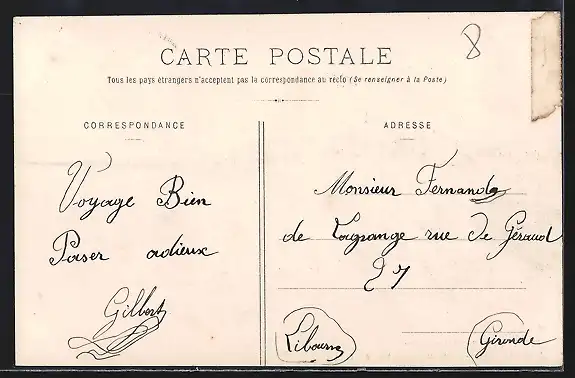 8
CARTE POSTALE
Tous les pays étrangers n'acceptent pas la correspondance au recto (Se renseigner à la Poste)
CORRESPONDANCE
ADRESSE
Voyage Bien
Paser adieux
Gilbert
Monsieur Fernand
de Lagrange rue De Géraud
27
Libourne
Gironde